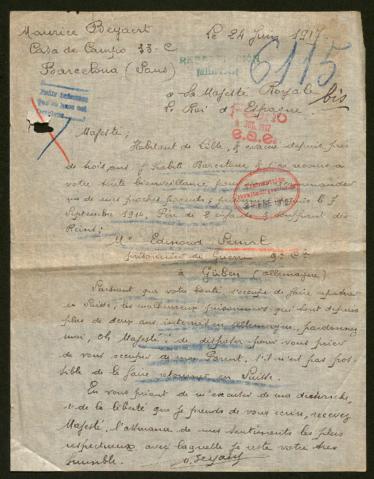 Maurice Beyaert
Casa de Campo 33-C
Barcelona (Sans)
Le 24 Juin 1917
6115
bis
a Sa Majesté Royale
Le Roi d'Espagne
Majesté;
Habitant de Lille, évacué depuis près
de trois ans, J'habite Barcelone, &
votre haute bienveillance pour
un de mes proches parents, depuis le 7
Septembre 1914, Père de 2 enfants & souffrant des
Reins;
Mr Edmond
prisonnier de Guerre 9e Cie
à Guben (allemagne)
Sachant que votre bonté s'occupe de faire rapatrier
en Suisse, les malheureux prisonniers qui sont depuis
plus de deux ans internés en allemagne, pardonnez
moi, oh Majesté, de disposer pour vous prier
de vous occuper de mon Parent, s'il n'est pas pos-
sible de le faire en Suisse.
En vous priant de m'excuser de ma démarche
& de la liberté que je prends de vous écrire, recevez
Majesté, l'assurance de mes sentiments les plus
respectueux, avec laquelle je reste votre très
humble.